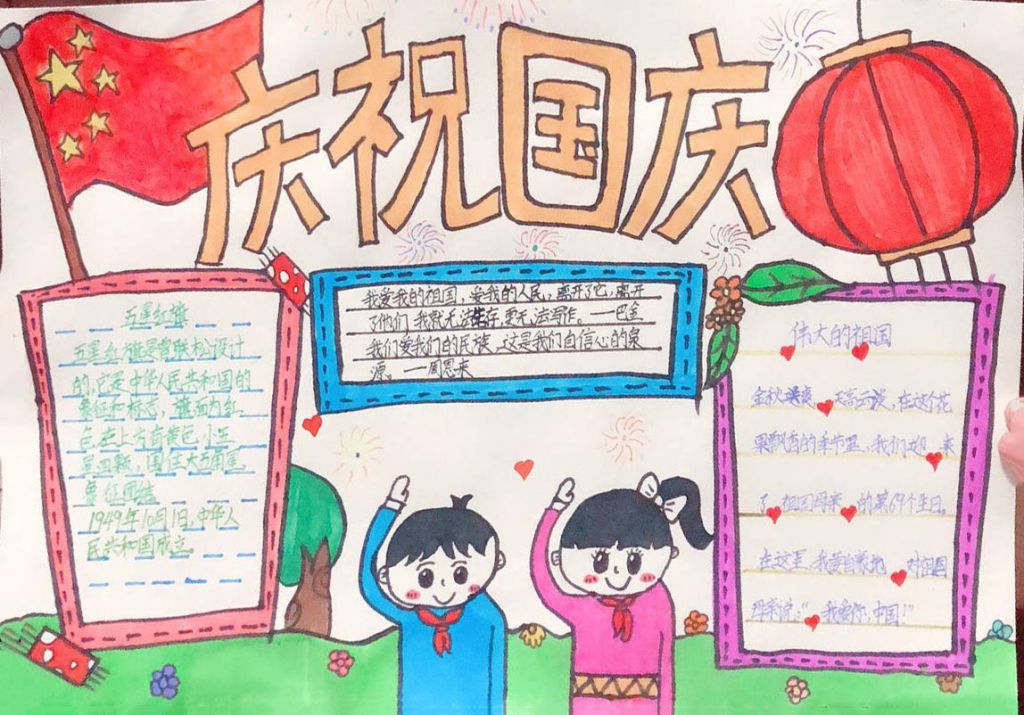 庆祝国庆
五星红旗
五星红旗是曾联松设计
的,它是中华人民共和国的
象征和标志,旗面为红
色,左上方有黄色小五
星四颗,围住大五角星
象征团结
1949年10月1日,中华人
民共和国成立。
我爱我的祖国,爱我的人民,离开了它,离开
了他们,我就无法生存,更无法写作。——巴金
我们爱我们的民族,这是我们自信心的泉
源。——周恩来
伟大的祖国
金秋 ,天高云淡,在这个花
果飘香的季节里,我们 来
了祖国母亲的第69个生日。
在这里,我要自豪地 对祖国
母亲说:“我爱你,中国!”